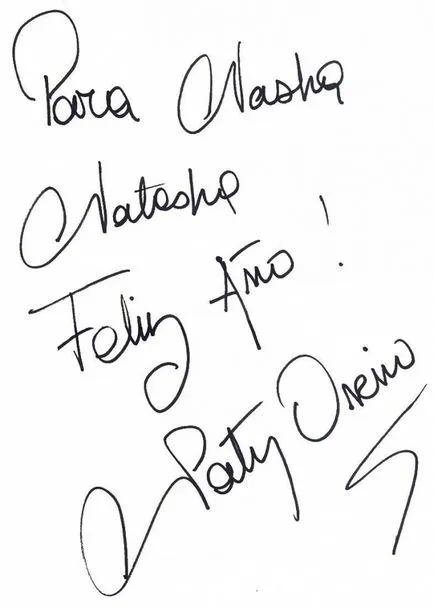 Para Nasha
Natasha
Feliz Año!
Naty Oreiro